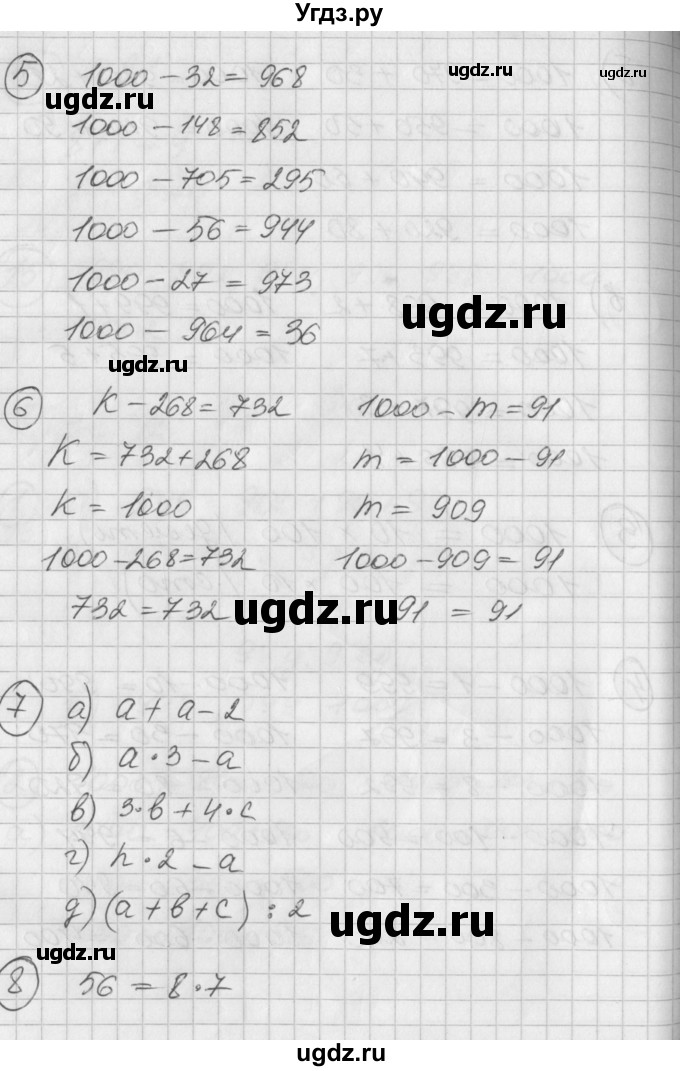 Угдз.ру
5 1000 – 32 = 968
ugdz.ru ugdz.ru ugdz.ru
1000 – 148 = 852
1000 – 705 = 295
1000 – 56 = 944
1000 – 27 = 973
ugdz.ru
1000 – 964 = 36
ugdz.ru
6 К – 268 = 732 1000 – m = 91
К = 732 + 268 m = 1000 – 91
К = 1000 m = 909
1000 – 268 = 732 1000 – 909 = 91
732 = 732 91 = 91
ugdz.ru
7 а) а + а – 2
б) а · 3 – а
в) 3 · в + 4 · с
г) h · 2 – а
д) (а + в + с) : 2
ugdz.ru
ugdz.ru
8 56 = 8 · 7
ugdz.ru